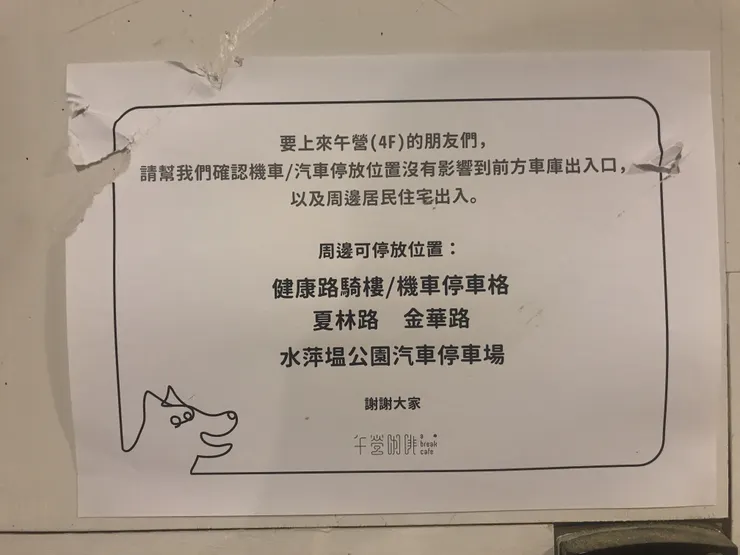 要上來午營(4F)的朋友們，
請幫我們確認機車/汽車停放位置沒有影響到前方車庫出入口，
以及周邊居民住宅出入。
周邊可停放位置：
健康路騎樓/機車停車格
夏林路 金華路
水萍塭公園汽車停車場
謝謝大家
午營咖啡 a break cafe